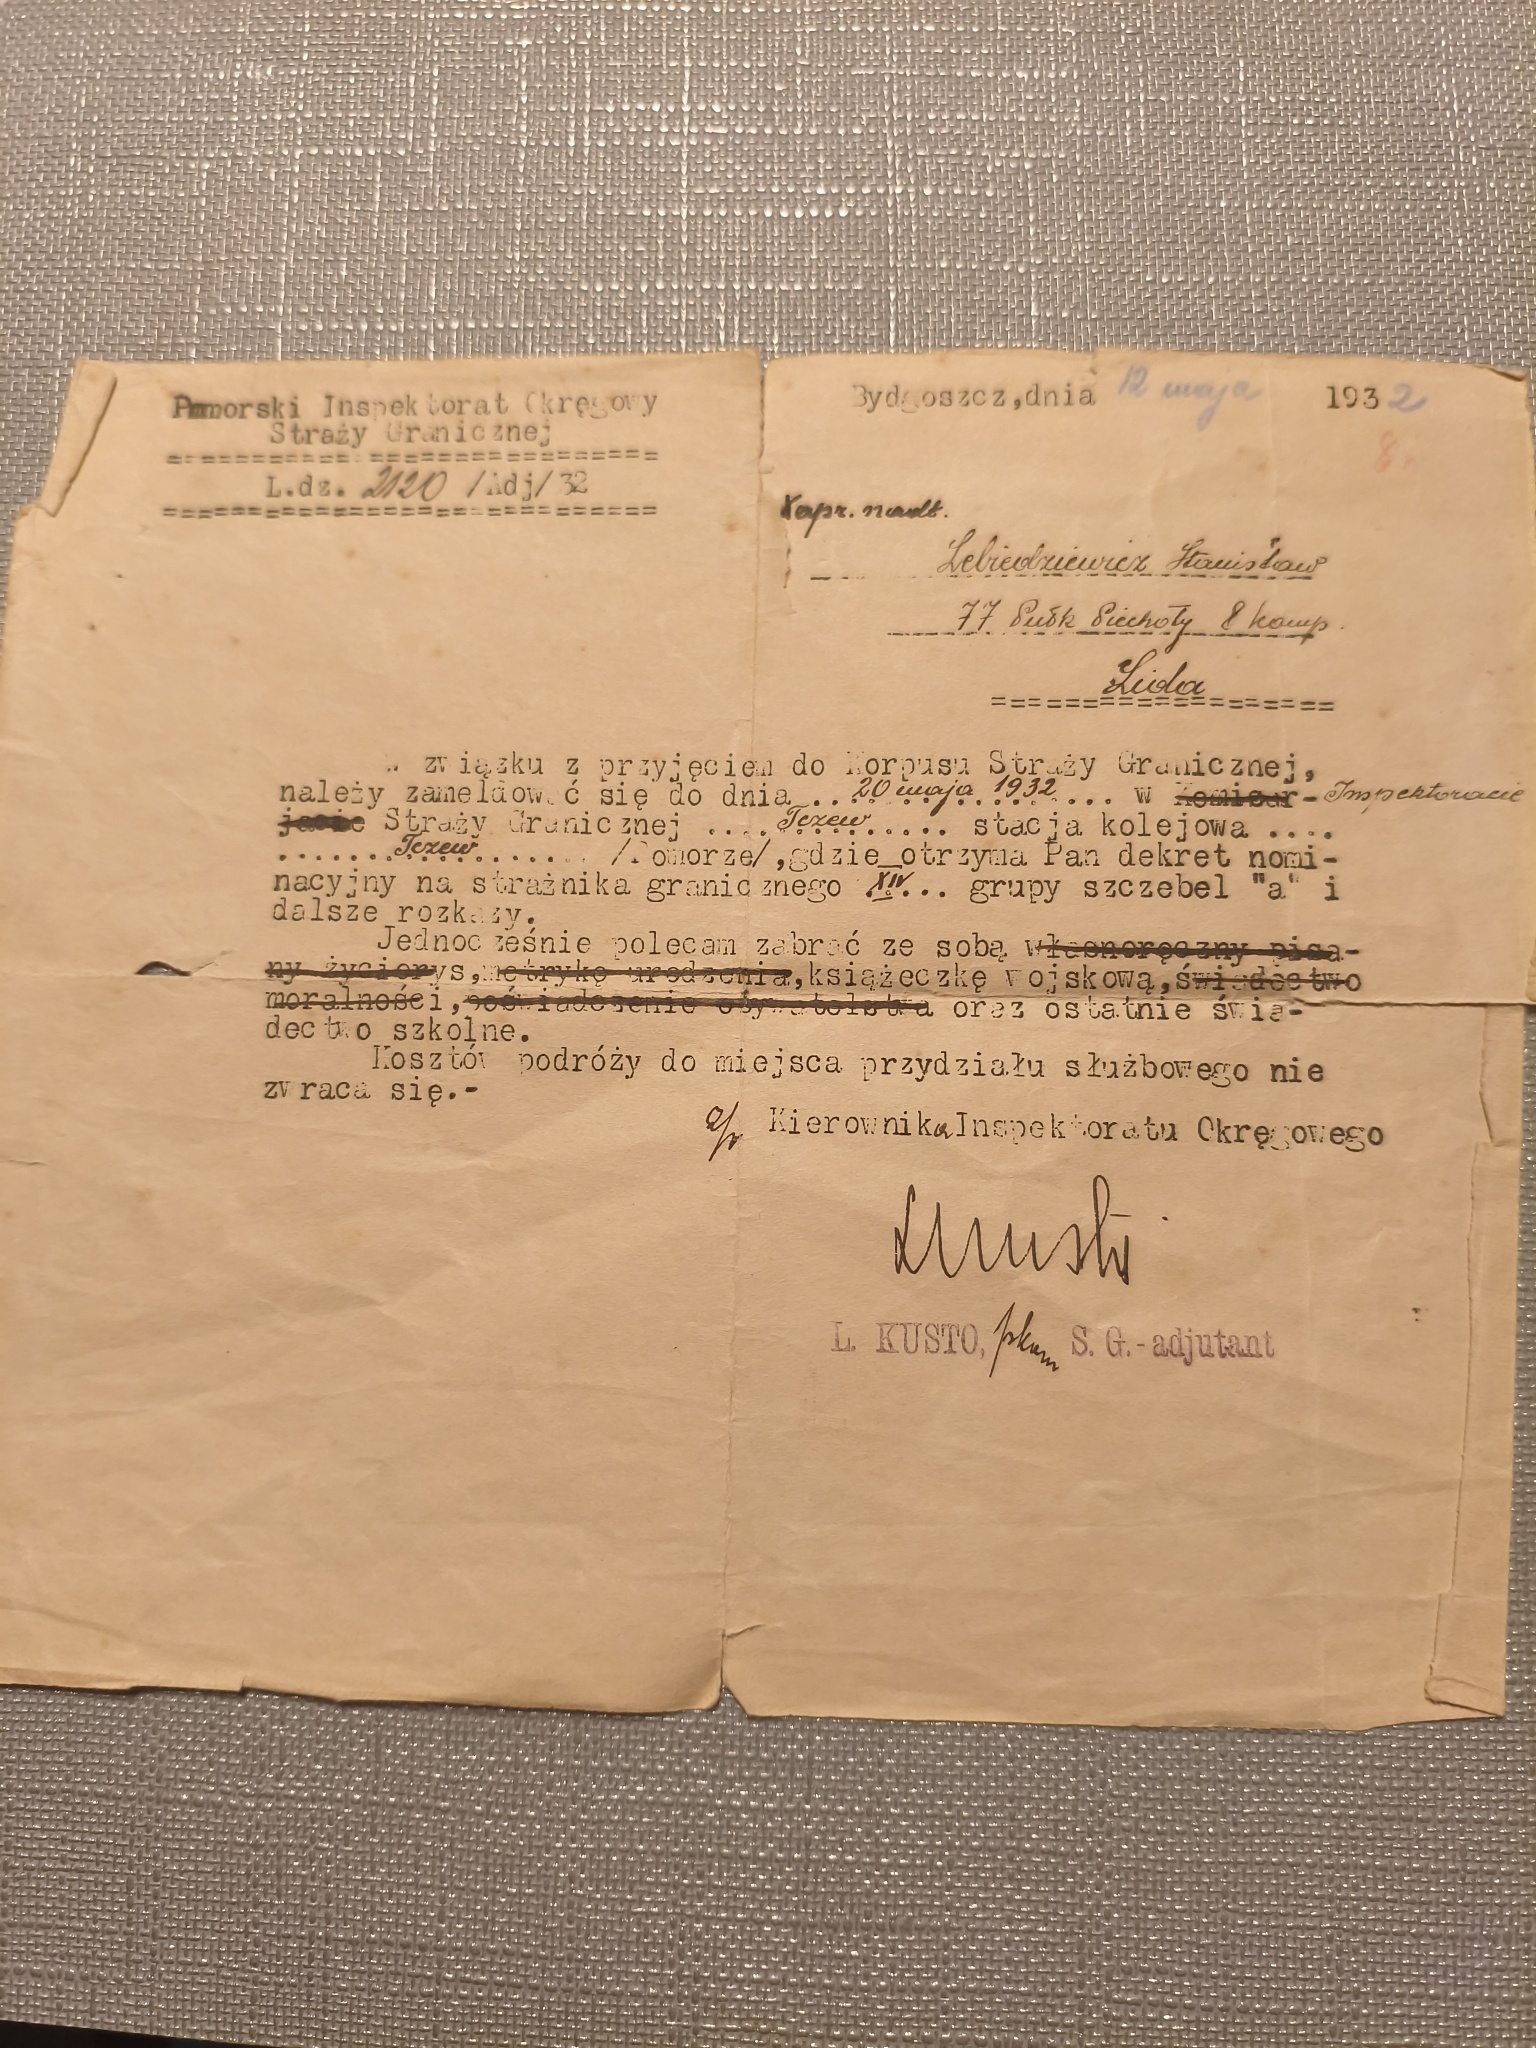 Pomorski Inspektorat Okręgowy
Straży Granicznej
L.dz. 2120 /Adj/ 32
Bydgoszcz,dnia 12 maja 1932
Kapr. nadt.
Lebiedziewicz Stanisław
77 Pułk Piechoty 8 komp.
Lida
W związku z przyjęciem do Korpusu Straży Granicznej,
należy zameldować się do dnia ..20 maja 1932... w Komisar- Inspektoracie
jacie Straży Granicznej ....Tczew..... stacja kolejowa ....
.......Tczew....... /Pomorze/,gdzie otrzyma Pan dekret nomi-
nacyjny na strażnika granicznego XIV... grupy szczebel "a" i
dalsze rozkazy.
Jednocześnie polecam zabrać ze sobą własnoręczny pisa-
ny życiorys,metrykę urodzenia,książeczkę wojskową,świadectwo
moralności,poświadczenie obywatelstwa oraz ostatnie świa-
dectwo szkolne.
Kosztów podróży do miejsca przydziału służbowego nie
zwraca się.-
Kierownika Inspektoratu Okręgowego
L. KUSTO, pkom S. G.-adjutant